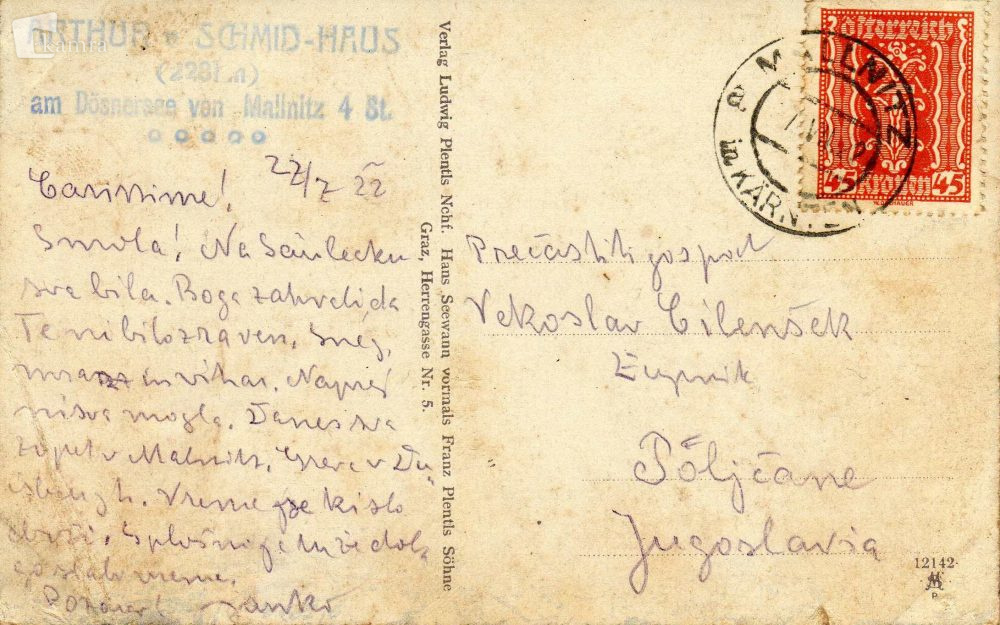 ARTHUR v SCHMID-HAUS
(2281 m)
am Dösnersee von Mallnitz 4 St.
22/7 22
Carissime!
Smola! Na Säulecku
sva bila. Boga zahvali, da
Te ni bilo zraven. Sneg,
mraz in vihar. Naprej
nisva mogla. Danes sva
zopet v Mallnitz. Greva v
Vreme je kislo
Splošno je
slabo vreme.
Pozdrav! Janko
Verlag Ludwig Plentls Nchf. Hans Seewann vormals Franz Plentls Söhne
Graz, Herrengasse Nr. 5.
Österreich
45 Kronen 45
MALLNITZ
in KÄRNTEN
Prečastiti gospod
Vekoslav Cilenšek
Župnik
Pöljčane
Jugoslavia
12142
P